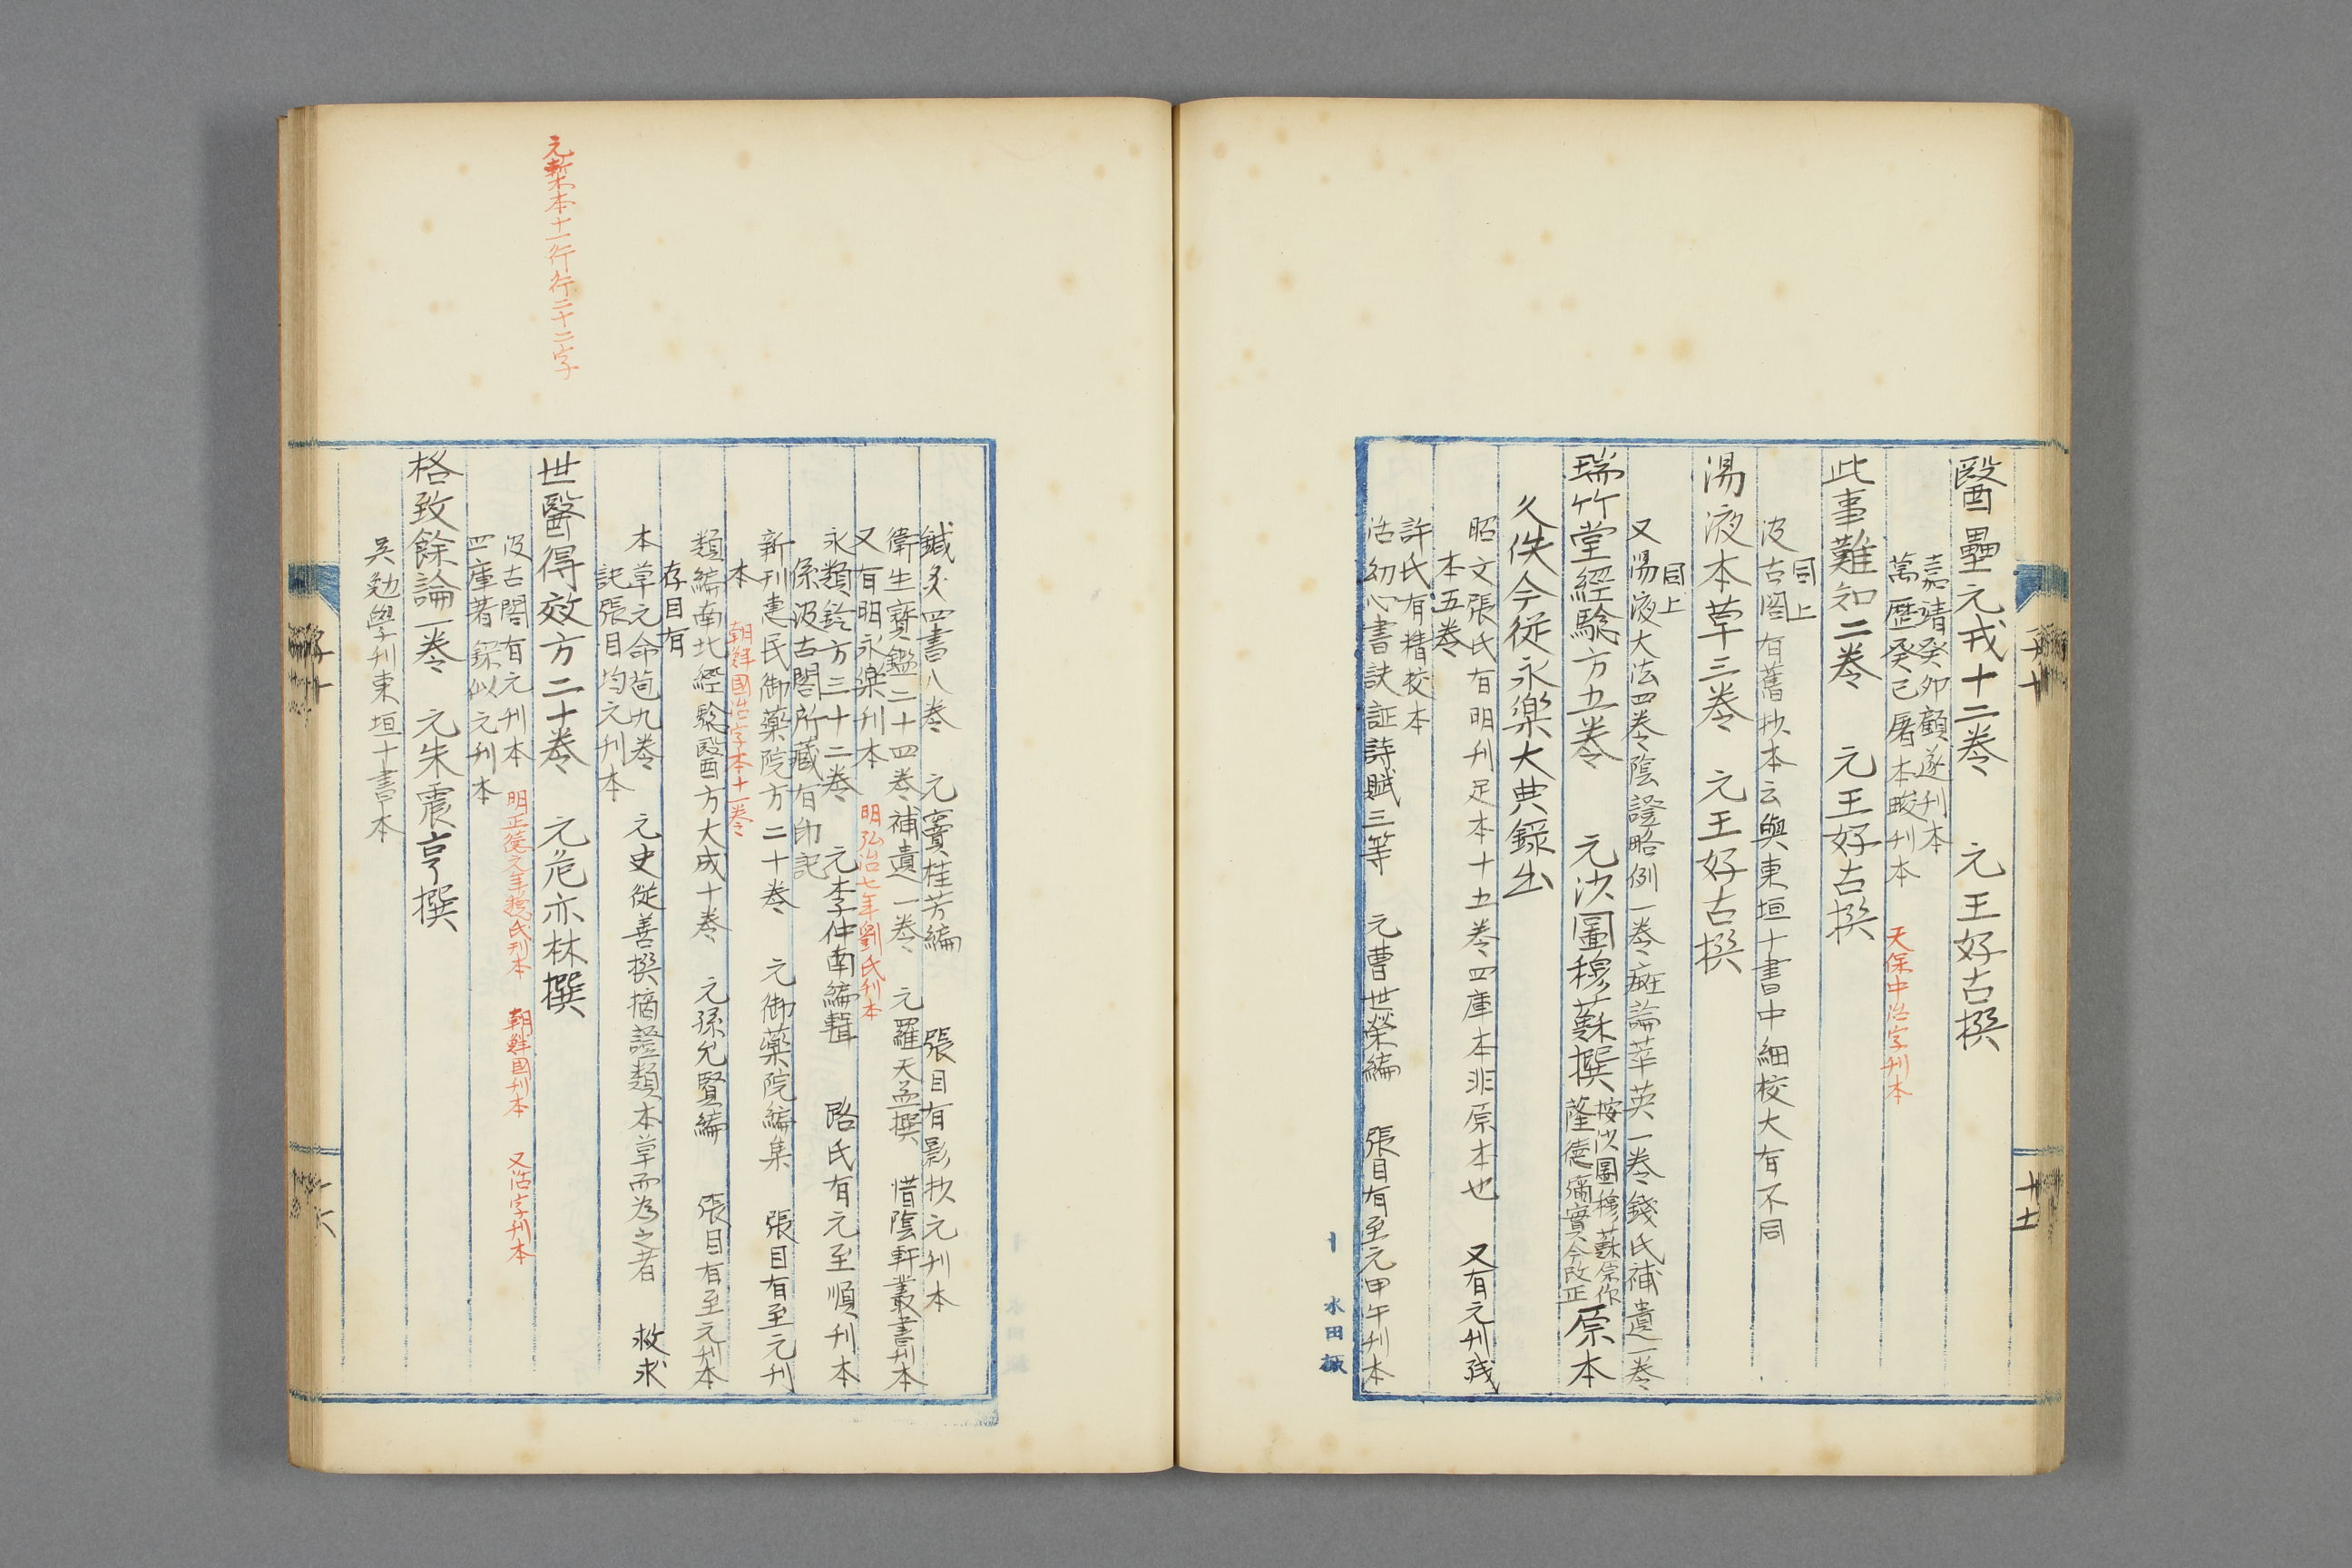 醫壘元戎十二卷　元王好古撰
嘉靖癸卯顧遂刊本
萬歷癸巳屠本畯刊本　天保中活字刊本
此事難知二卷　元王好古撰
同上
汲古閣有舊抄本云與東垣十書中細校大有不同
湯液本草三卷　元王好古撰
同上
又湯液大法四卷陰證略例一卷癍論萃英一卷錢氏補遺一卷
瑞竹堂經驗方五卷　元沙圖穆蘇撰
按沙圖穆蘇原作
薩德彌實今改正
原本
久佚今從永樂大典録出
昭文張氏有明刊足本十五卷四庫本非原本也　又有元刊残
本五卷
許氏有精校本
活幼心書訣証詩賦三等　元曹世榮編　張目有至元甲午刊本
水田極
鍼灸四書八卷　元竇桂芳編　張目有影抄元刊本
衛生寳鑑二十四卷補遺一卷　元羅天孟撰　惜陰軒叢書刊本
又有明永樂刊本　明弘治七年劉氏刊本
永類鈐方三十二卷　元李仲南編輯　路氏有元至順刊本
係汲古閣所藏有印記
新刊惠民御藥院方二十卷　元御藥院編集　張目有至元刊
本　朝鮮國活字本十一卷
類編南北經驗醫方大成十卷　元孫允賢編　張目有至元刊本
存目有
本草元命苞九卷　元史從善撰摘證類本草而為之者　救求
記張目均元刊本
元槧本十一行行二十二字
世醫得效方二十卷　元危亦林撰
汲古閣有元刊本　明正德元年魏氏刊本　朝鮮国刊本　又活字刊本
四庫著録似元刊本
格致餘論一卷　元朱震亨撰
吳勉學刊東垣十書本